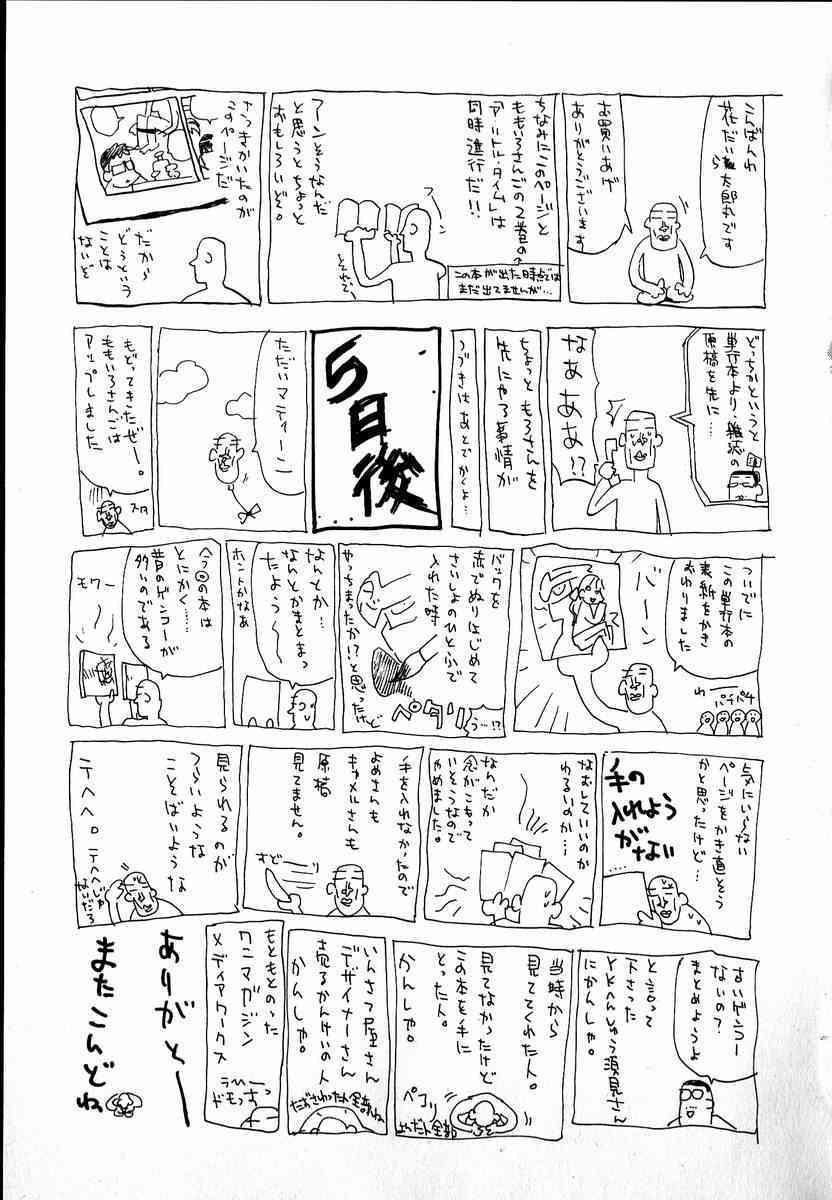 こんばんわ
花だい
太郎丸です
お買いあげ
ありがとうございます
ちなみにこのページと
ももいろさんごの2巻の
「アルトル・タイム」は
同時進行だ!!
この本が出た時点では
まだ出てませんが…
フーン
それぞれ
アーンそうなんだ
と思うとちょっと
おもしろいぞ。
さっきかいたのが
このページだ
だから
どうという
ことは
ないぞ
どっちかというと
単行本より、雑誌の
原稿を先に…
なぁあぁ!?
ちょっともろさんを
先にやる事情が
つづきはあとでかくよ…
5日後
ただいマティーニ
もどってきたぜー。
ももいろさんごは
アップしました
ついでに
この単行本の
表紙をかき
おわりました
バーン
わー
パチパチ
バックを
赤でぬりはじめて
さいしょのひとふで
入れた時
やっちまったか!?と思ったけど
ペタリ
う…!?
なんとか…
なんとかまとまっ
たよう〜
ホントかなあ
の本は
とにかく……
昔のゲンコーが
多いのである
モワー
気にいらない
ページをかき直そう
かと思ったけど…
手の
入れよう
がない
……
なおしていいのか
わるいのか…
なんだか
念がこもって
いそうなので
やめました。
手を入れなかったので
よめさんも
キャメルさんも
原稿
見てません。
見られるのが
つらいような
こそばいような
テヘヘ。
テヘヘじゃ
ないだろ
古いゲンコー
ないの?
まとめようよ
と言って
下さった
YKへんしゅう須見さん
にかんしゃ。
当時から
見ててくれた人。
見てなかったけど
この本を手に
とった人。
かんしゃ。
ペコリ
いんさつ屋さん
デザイナーさん
売るかんけいの人
かんしゃ。
もともとのった
ワニマガジン
メディアワークス
ドモっ
ありがとー
またこんどね